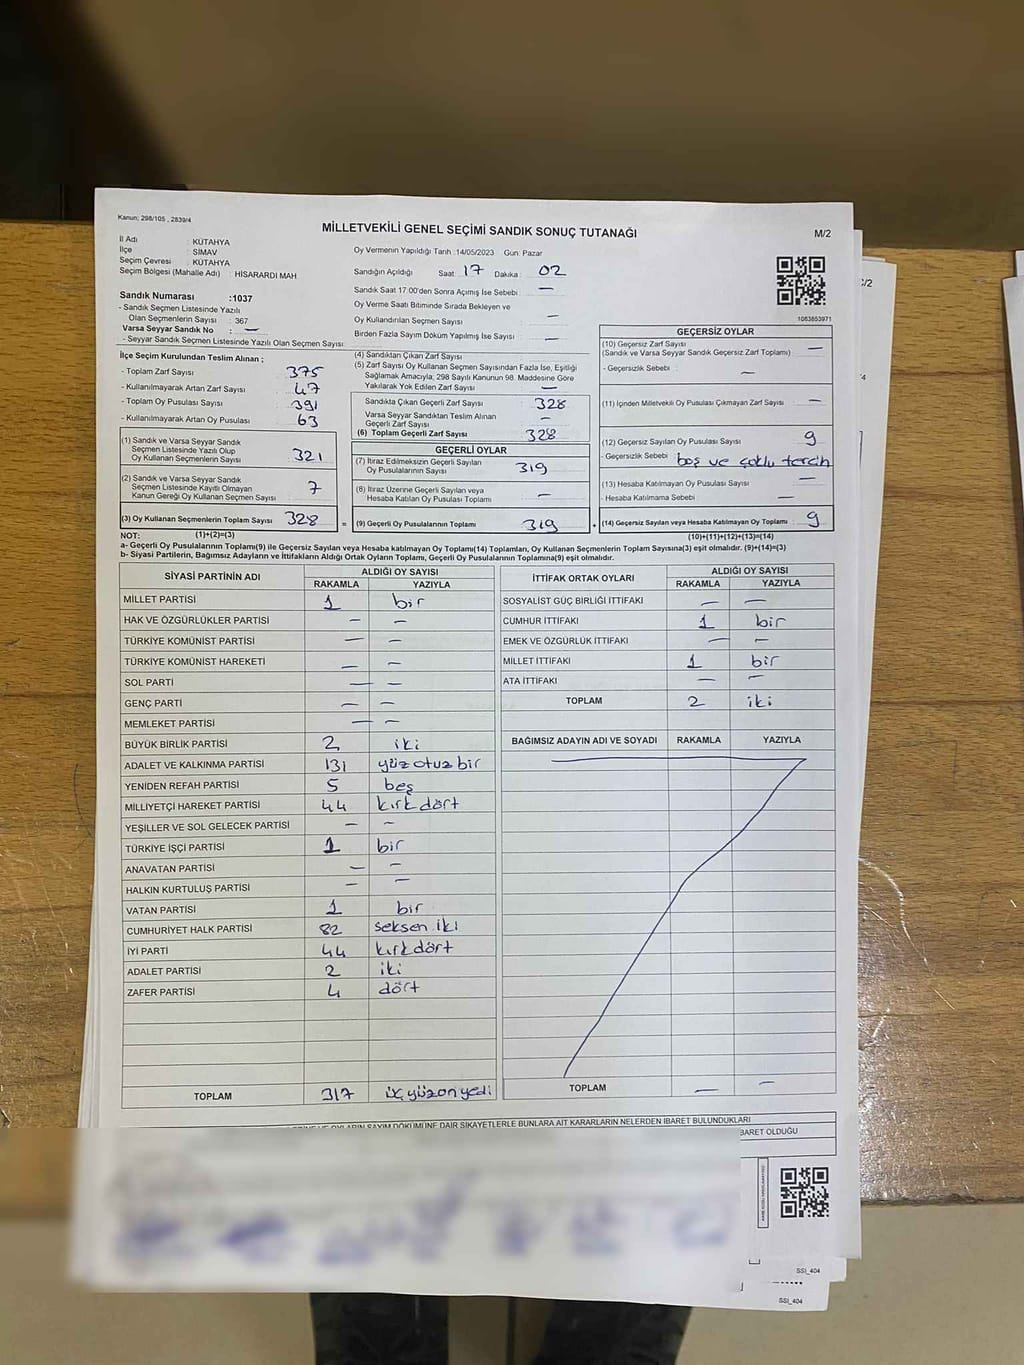 Kanun; 298/105 , 2839/4
MİLLETVEKİLİ GENEL SEÇİMİ SANDIK SONUÇ TUTANAĞI
M/2
İl Adı : KÜTAHYA
İlçe : SİMAV
Seçim Çevresi : KÜTAHYA
Seçim Bölgesi (Mahalle Adı) : HİSARARDI MAH
Sandık Numarası :1037
- Sandık Seçmen Listesinde Yazılı
Olan Seçmenlerin Sayısı : 367
Varsa Seyyar Sandık No : —
- Seyyar Sandık Seçmen Listesinde Yazılı Olan Seçmen Sayısı:
Oy Vermenin Yapıldığı Tarih :14/05/2023 Gün: Pazar
Sandığın Açıldığı Saat : 17 Dakika : 02
Sandık Saat 17:00'den Sonra Açımış İse Sebebi : —
Oy Verme Saati Bitiminde Sırada Bekleyen ve
Oy Kullandırılan Seçmen Sayısı : —
Birden Fazla Sayım Döküm Yapılmış İse Sayısı : —
1063853971
İlçe Seçim Kurulundan Teslim Alınan ;
- Toplam Zarf Sayısı : 375
- Kullanılmayarak Artan Zarf Sayısı : 47
- Toplam Oy Pusulası Sayısı : 391
- Kullanılmayarak Artan Oy Pusulası : 63
(1) Sandık ve Varsa Seyyar Sandık
Seçmen Listesinde Yazılı Olup
Oy Kullanan Seçmenlerin Sayısı : 321
(2) Sandık ve Varsa Seyyar Sandık
Seçmen Listesinde Kayıtlı Olmayan
Kanun Gereği Oy Kullanan Seçmen Sayısı : 7
(3) Oy Kullanan Seçmenlerin Toplam Sayısı : 328
(1)+(2)=(3)
(4) Sandıktan Çıkan Zarf Sayısı
(5) Zarf Sayısı Oy Kullanan Seçmen Sayısından Fazla İse, Eşitliği
Sağlamak Amacıyla; 298 Sayılı Kanunun 98. Maddesine Göre
Yakılarak Yok Edilen Zarf Sayısı : —
Sandıkta Çıkan Geçerli Zarf Sayısı : 328
Varsa Seyyar Sandıktan Teslim Alınan
Geçerli Zarf Sayısı : —
(6) Toplam Geçerli Zarf Sayısı : 328
GEÇERLİ OYLAR
(7) İtiraz Edilmeksizin Geçerli Sayılan
Oy Pusulalarının Sayısı : 319
(8) İtiraz Üzerine Geçerli Sayılan veya
Hesaba Katılan Oy Pusulası Toplamı : —
= (9) Geçerli Oy Pusulalarının Toplamı : 319
GEÇERSİZ OYLAR
(10) Geçersiz Zarf Sayısı : —
(Sandık ve Varsa Seyyar Sandık Geçersiz Zarf Toplamı)
- Geçersizlik Sebebi : —
(11) İçinden Milletvekili Oy Pusulası Çıkmayan Zarf Sayısı : —
(12) Geçersiz Sayılan Oy Pusulası Sayısı : 9
- Geçersizlik Sebebi : boş ve çoklu tercih
(13) Hesaba Katılmayan Oy Pusulası Sayısı : —
- Hesaba Katılmama Sebebi : —
+ (14) Geçersiz Sayılan veya Hesaba Katılmayan Oy Toplamı : 9
(10)+(11)+(12)+(13)=(14)
NOT:
a- Geçerli Oy Pusulalarının Toplamı(9) ile Geçersiz Sayılan veya Hesaba katılmayan Oy Toplamı(14) Toplamları, Oy Kullanan Seçmenlerin Toplam Sayısına(3) eşit olmalıdır. (9)+(14)=(3)
b- Siyasi Partilerin, Bağımsız Adayların ve İttifakların Aldığı Ortak Oyların Toplamı, Geçerli Oy Pusulalarının Toplamına(9) eşit olmalıdır.
SİYASİ PARTİNİN ADI ALDIĞI OY SAYISI
RAKAMLA YAZIYLA
MİLLET PARTİSİ 1 bir
HAK VE ÖZGÜRLÜKLER PARTİSİ — —
TÜRKİYE KOMÜNİST PARTİSİ — —
TÜRKİYE KOMÜNİST HAREKETİ — —
SOL PARTİ — —
GENÇ PARTİ — —
MEMLEKET PARTİSİ — —
BÜYÜK BİRLİK PARTİSİ 2 iki
ADALET VE KALKINMA PARTİSİ 131 yüz otuz bir
YENİDEN REFAH PARTİSİ 5 beş
MİLLİYETÇİ HAREKET PARTİSİ 44 kırk dört
YEŞİLLER VE SOL GELECEK PARTİSİ — —
TÜRKİYE İŞÇİ PARTİSİ 1 bir
ANAVATAN PARTİSİ — —
HALKIN KURTULUŞ PARTİSİ — —
VATAN PARTİSİ 1 bir
CUMHURİYET HALK PARTİSİ 82 seksen iki
İYİ PARTİ 44 kırk dört
ADALET PARTİSİ 2 iki
ZAFER PARTİSİ 4 dört
TOPLAM 317 üç yüz on yedi
İTTİFAK ORTAK OYLARI ALDIĞI OY SAYISI
RAKAMLA YAZIYLA
SOSYALİST GÜÇ BİRLİĞİ İTTİFAKI — —
CUMHUR İTTİFAKI 1 bir
EMEK VE ÖZGÜRLÜK İTTİFAKI — —
MİLLET İTTİFAKI 1 bir
ATA İTTİFAKI — —
TOPLAM 2 iki
BAĞIMSIZ ADAYIN ADI VE SOYADI RAKAMLA YAZIYLA
TOPLAM — —
OYLARIN SAYIM DÖKÜMÜNE DAİR ŞİKAYETLERLE BUNLARA AİT KARARLARIN NELERDEN İBARET BULUNDUKLARI
İBARET OLDUĞU
SSI_404
SSI_404